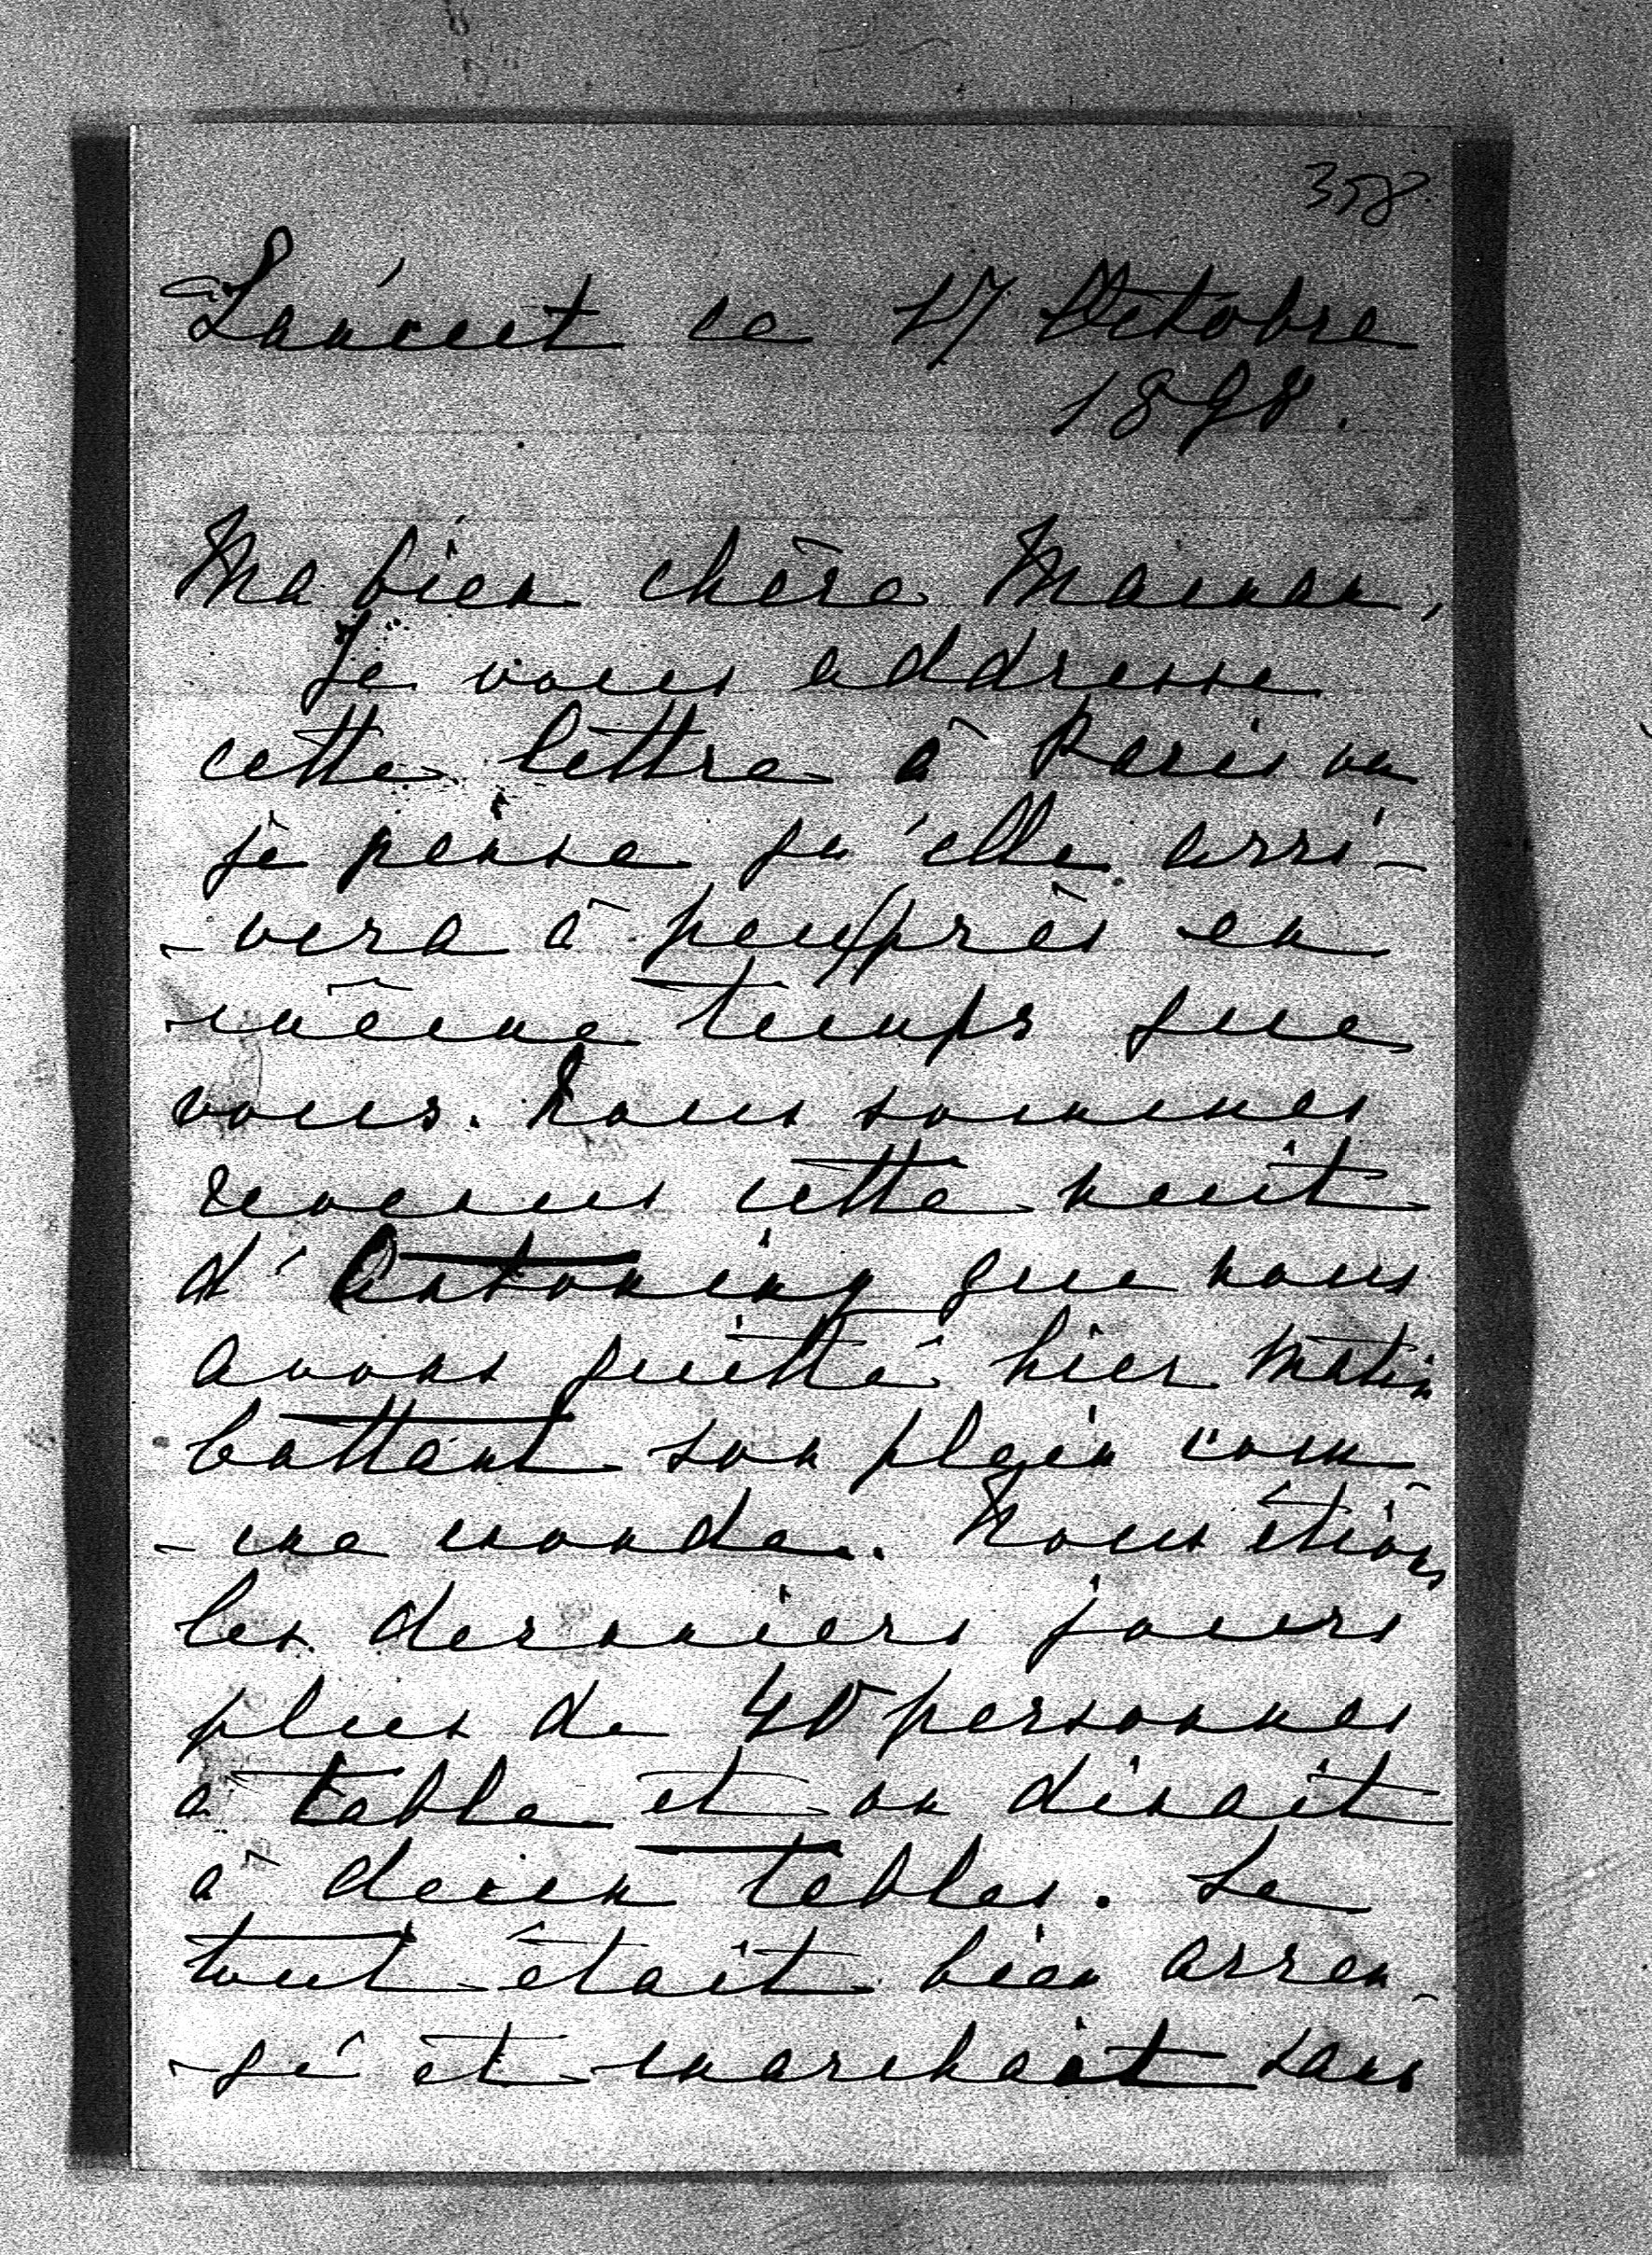 358.
Łańcut ce 17 Octobre
1898.
Ma bien chère Maman,
Je vous addresse
cette lettre à Paris vu
je pense qu'elle arri-
-vera à peu près en
même temps que
vous. Nous sommes
revenus cette nuit
d'Antoniny que nous
avons quitté hier matin
battant son plein com-
-me monde. Nous étions
les derniers jours
plus de 40 personnes
a table et on dinait
à deux tables. Le
tout était bien arran-
-gé et marchait sans